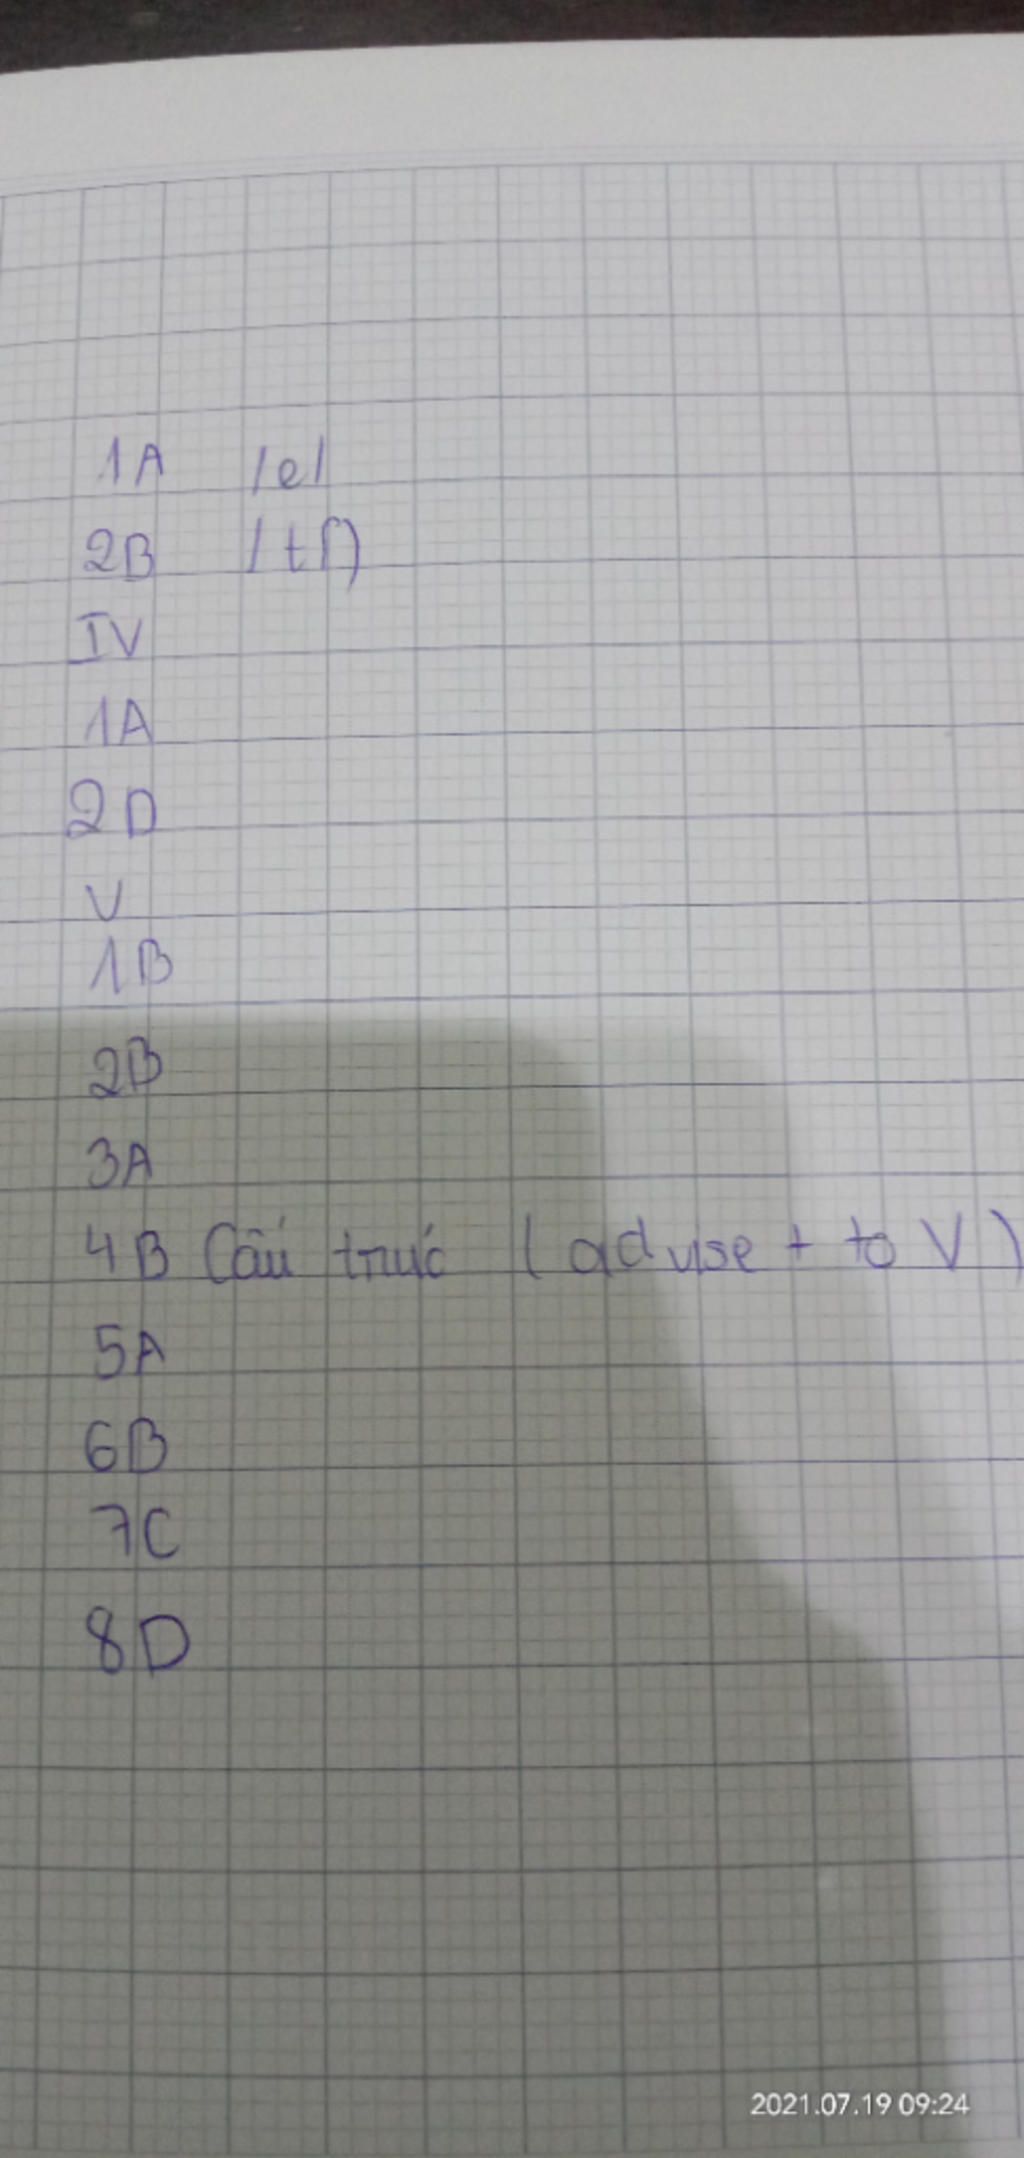 1A /e/
2B /tʃ)
IV
1A
2D
V
1B
2B
3A
4B Cấu trúc (advise + to V)
5A
6B
7C
8D
2021.07.19 09:24